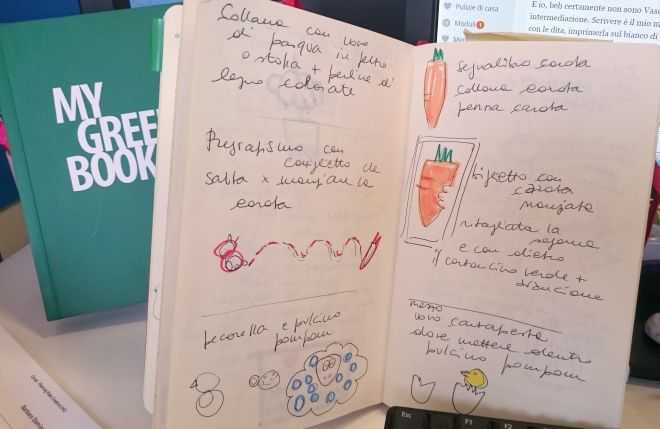 MY
GREE
BOOK
Collana con uovo
di pasqua in feltro
o stoffa + perline di
legno colorate
Pregrafismo con
coniglietto che
salta x mangiare la
carota
pecorella e pulcino
pompom
Segnalibro carota
collana carota
penna carota
biglietto con
carota
mangiata
ritagliata la
sagoma
e con dietro
il cartoncino verde +
arancione
mezzo
uovo cartapesta
dove mettere dentro
pulcino pompom
Pulizie di casa
Moduli
E io, beh certamente non sono Vasc
intermediazione. Scrivere è il mio m
con le dita, imprimerla sul bianco di
Esc
F1
F2